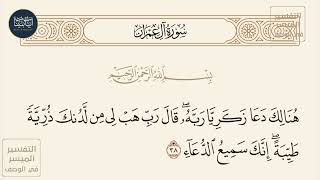 سُورَةُ آلِ عِمْرَانَ
بِسْمِ اللَّهِ الرَّحْمَٰنِ الرَّحِيمِ
هُنَالِكَ دَعَا زَكَرِيَّا رَبَّهُۥۖ قَالَ رَبِّ هَبْ لِى مِن لَّدُنكَ ذُرِّيَّةً
طَيِّبَةًۖ إِنَّكَ سَمِيعُ ٱلدُّعَآءِ ٣٨
التفسير
الميسر
في الوصف